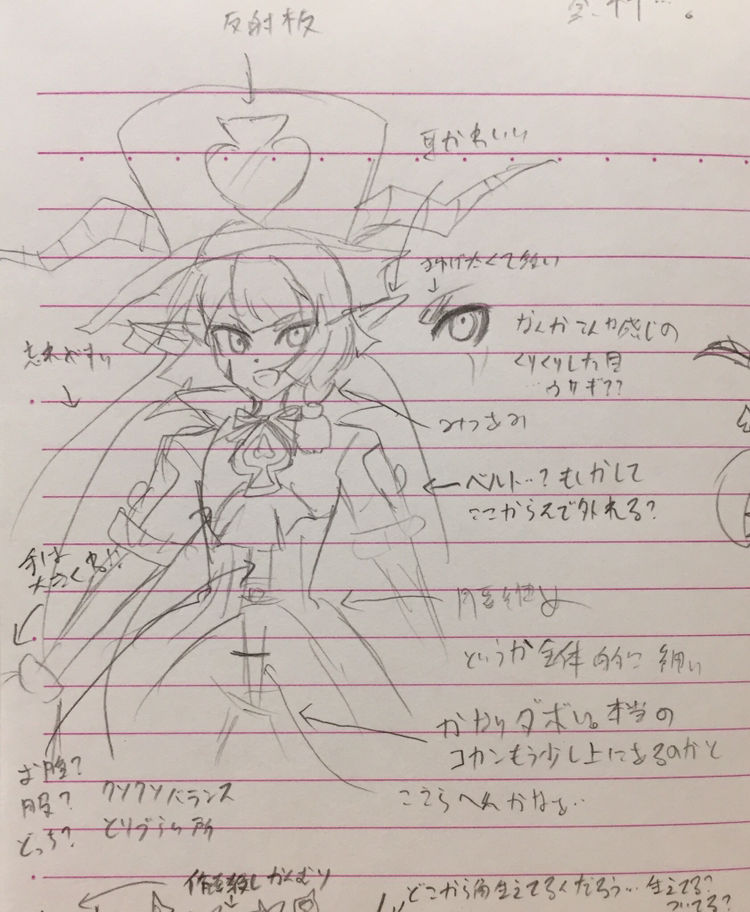 反射板
耳かわいい
まゆげ太くて短い
なんかてんや感じの
くりくりした目
ウサギ??
みつあみ
ベルト…?もしかして
ここからそで外れる?
手は
大きくする!!
胴長細め
というか全体的に細い
かなりダボい。本当の
コカンもう少し上にあるのかと
ここらへんかなぁ…
お腹?
服?
どっち?
クソクソバランス
とりづらい所
かんむり
どこから角生えてるんだろう…生えてる?
ついてる?